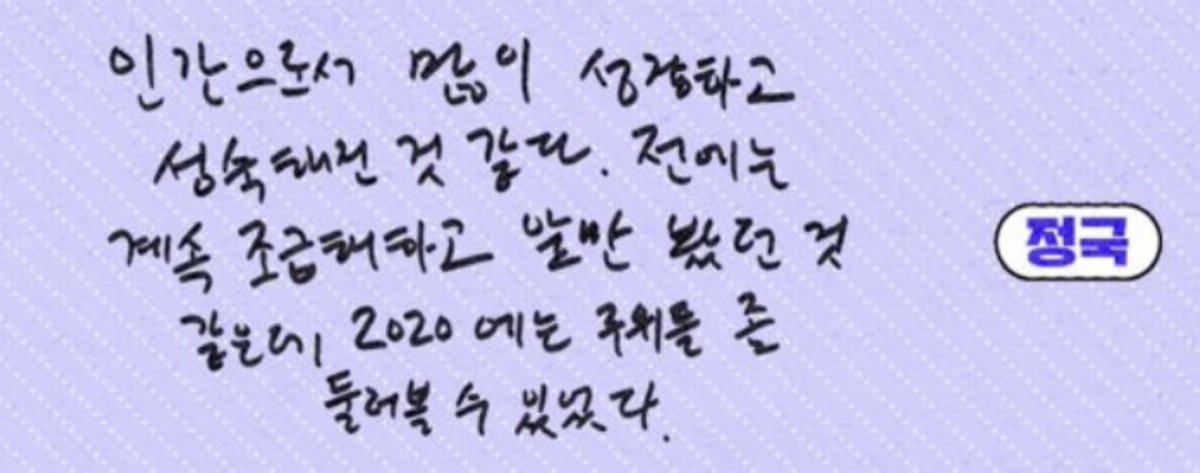 인간으로서 많이 성장하고
성숙해진 것 같다. 전에는
계속 조급해하고 앞만 봤던 것
같은데, 2020에는 주위를 좀
둘러볼 수 있었다.
정국